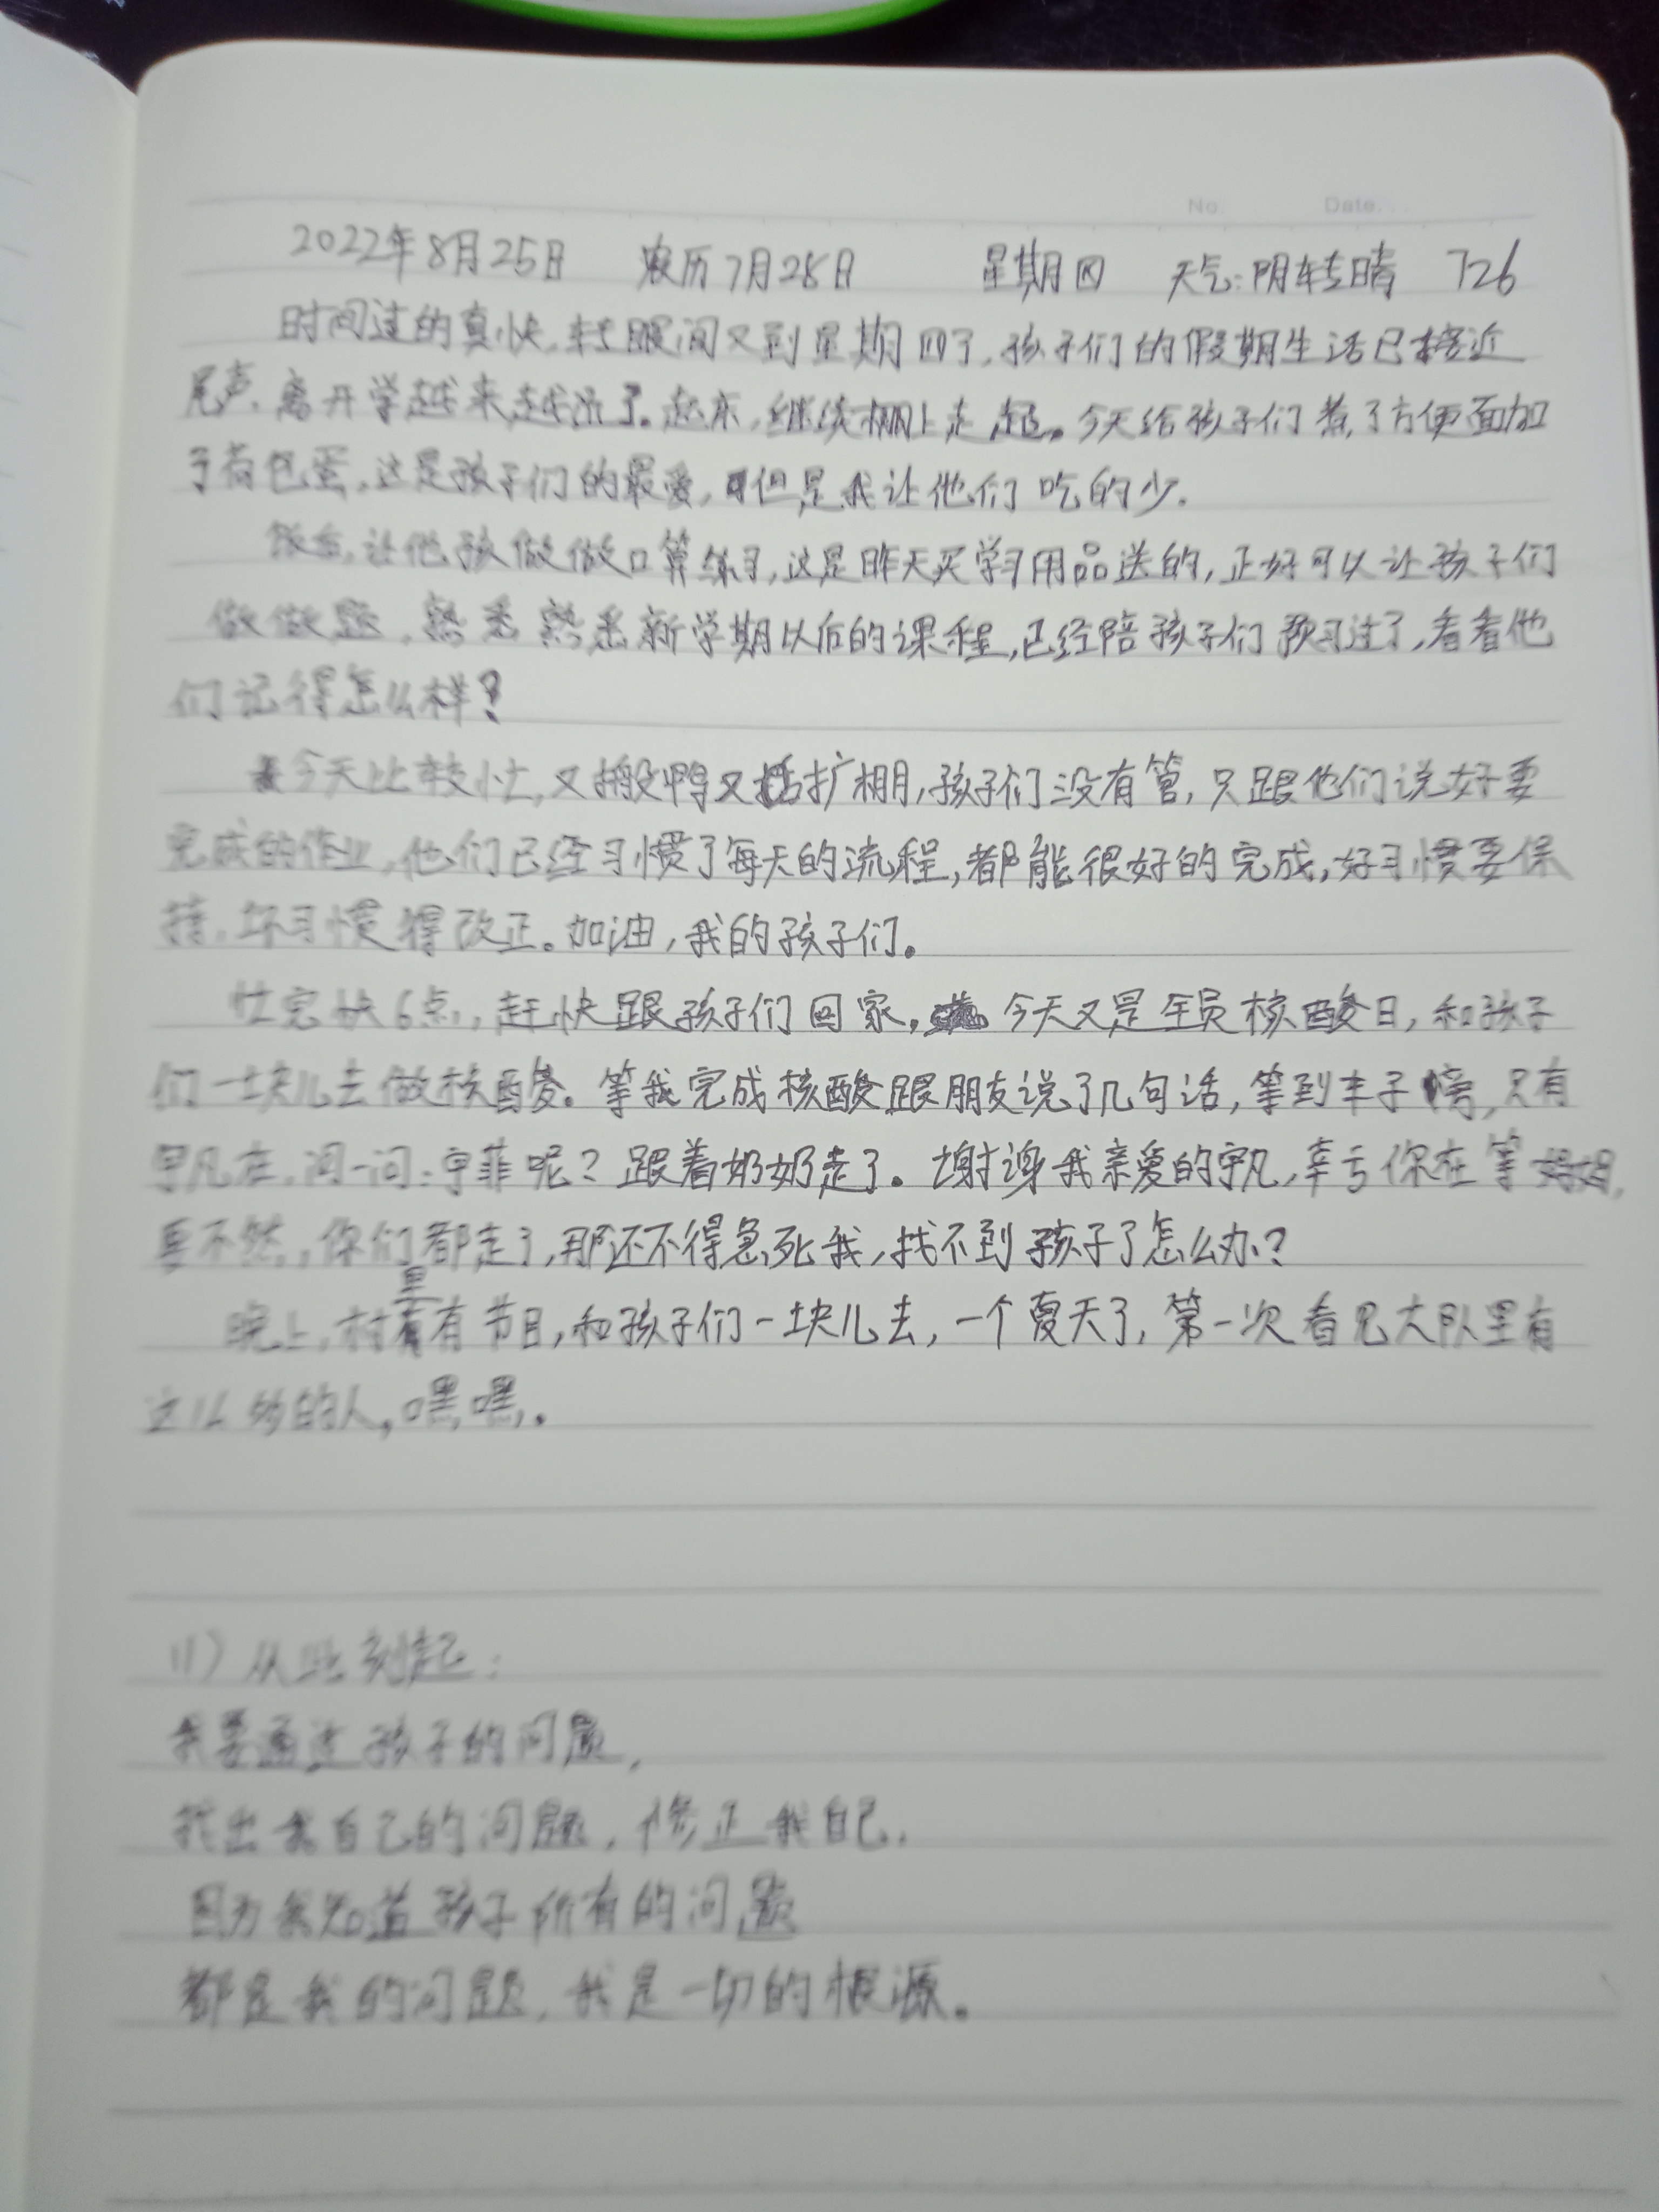 No. Date.
2022年8月25日 农历7月28日 星期四 天气:阴转晴 726
时间过的真快,转眼间又到星期四了,孩子们的假期生活已接近
尾声,离开学越来越近了。起床,继续棚上走起。今天给孩子们煮了方便面加
了荷包蛋,这是孩子们的最爱,但是我让他们吃的少.
饭后,让他孩做做口算练习,这是昨天买学习用品送的,正好可以让孩子们
做做题,熟悉熟悉新学期以后的课程,已经陪孩子们预习过了,看看他
们记得怎么样?
今天比较忙,又搬鸭又扩棚,孩子们没有管,只跟他们说好要
完成的作业,他们已经习惯了每天的流程,都能很好的完成,好习惯要保
持,坏习惯得改正。加油,我的孩子们。
忙完快6点,赶快跟孩子们回家。今天又是全员核酸日,和孩子
们一块儿去做核酸。等我完成核酸跟朋友说了几句话,等到车子旁,只有
宇凡在,问一问:宇菲呢?跟着奶奶走了。谢谢我亲爱的宇凡,幸亏你在等妈妈,
要不然,你们都走了,那还不得急死我,找不到孩子了怎么办?
晚上,村里有节目,和孩子们一块儿去,一个夏天了,第一次看见大队里有
这么多的人,嘿嘿.
11)从此刻起:
我要通过孩子的问题,
找出我自己的问题,修正我自己.
因为我知道孩子所有的问题
都是我的问题,我是一切的根源。